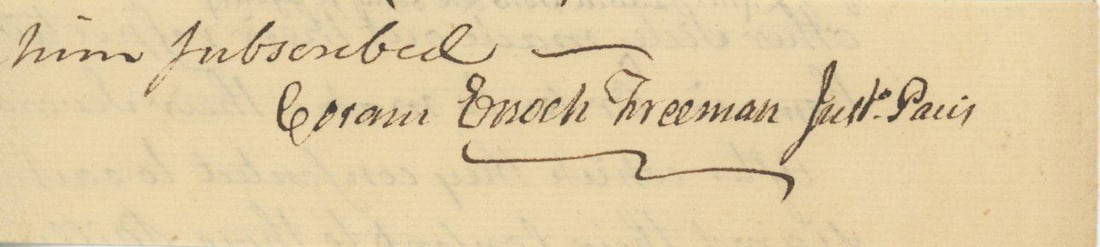 him subscribed —
Coram Enoch Freeman Just.^o Pacis